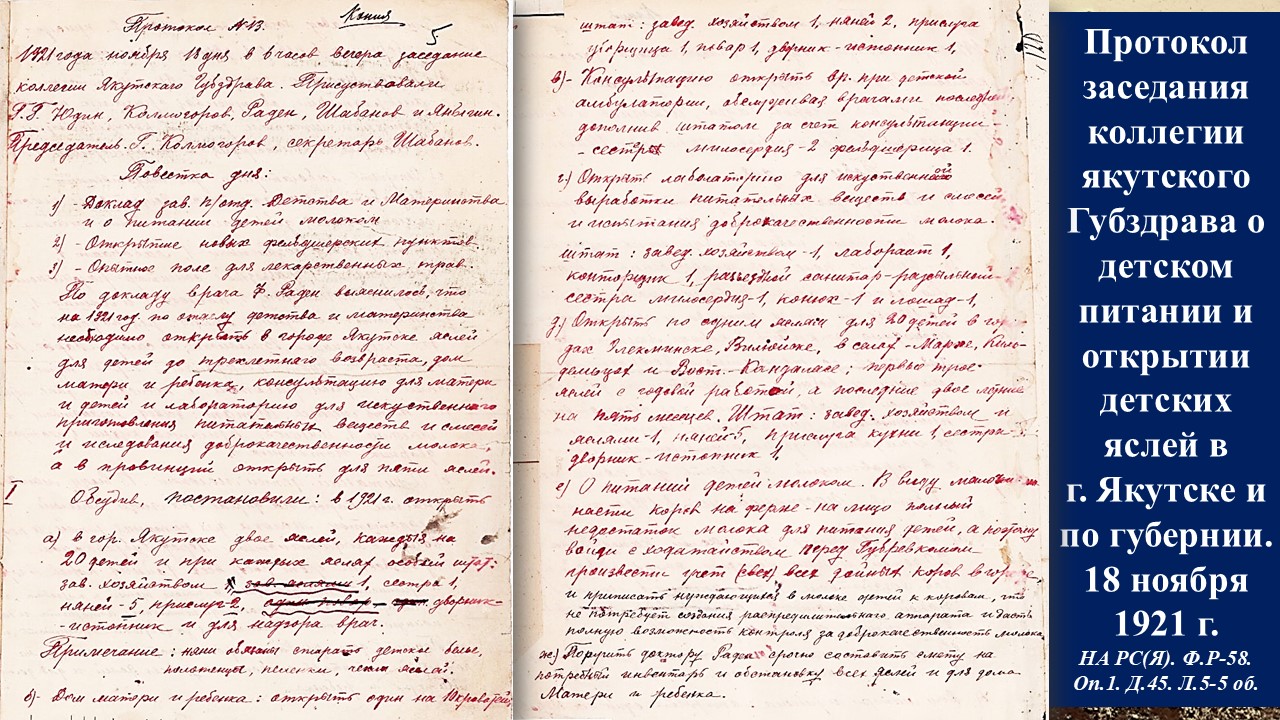 Копия
Протокол №13.
5
1921 года ноября 18 дня в 6 часов вечера заседание
коллегии Якутскаго Губздрава. Присутствовали
Г.Г. Юдин, Колмогоров, Раден, Шабанов и
Председатель Г. Колмогоров, секретарь Шабанов.
Повестка дня:
1) - Доклад зав. п/отд. Детства и Материнства
и о питании детей молоком
2) - Открытие новых фельдшерских пунктов
3) - Опытное поле для лекарственных трав.
По докладу врача Ф. Раден выяснилось, что
на 1921 год по охране детства и материнства
необходимо открыть в городе Якутске яслей
для детей до трехлетнего возвраста, дом
матери и ребенка, консультацию для матери
и детей и лабораторию для искуственнаго
приготовления питательных веществ и смесей
и иследования доброкачественности молока,
а в провинции открыть для пяти яслей.
I Обсудив, постановили: в 1921 г. открыть
а) в гор. Якутске двое яслей, каждыя на
20 детей и при каждых яслях особый штат:
зав. хозяйством 1, сестра 1,
наней - 5, прислуг - 2, дворник-
- истопник и для надзора врач.
Примечание: нани обязаны стирать детское белье,
пеленки
б) - Дом матери и ребенка: открыть один на 10 кроватей
штат: завед. хозяйством 1, наней 2, прислуга
уборщица 1, повар 1, дворник - истопник 1,
в) - Консультацию открыть вр. при детской
амбулатории, обслуживая врачами последней,
дополнив штатом за счет консультации -
- сестры милосердия - 2 фельдшерица 1.
г) Открыть лаболаторию для искуственной
выработки питательных веществ и смесей
и испытания доброкачественности молока.
штат: завед. хозяйством - 1, лаборант 1,
конторщик 1, разъездной санитар-разсыльный-
сестра милосердия - 1, конюх - 1 и лошад - 1,
д) Открыть по одним яслям для 20 детей в горо-
дах Олекминске, Вилюйске, в селах - Мархе, Киль-
демцах и Вост. - Кангалаве; первые трое
яслей с годовой работой, а последние двое летние
на пять месяцев. Штат: завед. хозяйством и
яслями - 1, наней 5, прислуга кухни 1, сестра
дворник - истопник 1.
е) О питании детей молоком. В виду малоч-
ности коров на ферме - на лицо полный
недостаток молока для питания детей, а потому
войти с ходатайством перед Губревкомом
произвести учет (свех) всех дойных коров в городе
и приписать нуждающихся в молоке детей к коровам, что
не потребует создания распределительнаго аппарата и даст
полную возможность контроля за доброкачественность молока
ж) Поручить доктору Раден срочно составить смету на
потребный инвентарь и обстановку всех яслей и для дома
Матери и ребенка.
Протокол
заседания
коллегии
якутского
Губздрава о
детском
питании и
открытии
детских
яслей в
г. Якутске и
по губернии.
18 ноября
1921 г.
НА РС(Я). Ф.Р-58.
Оп.1. Д.45. Л.5-5 об.